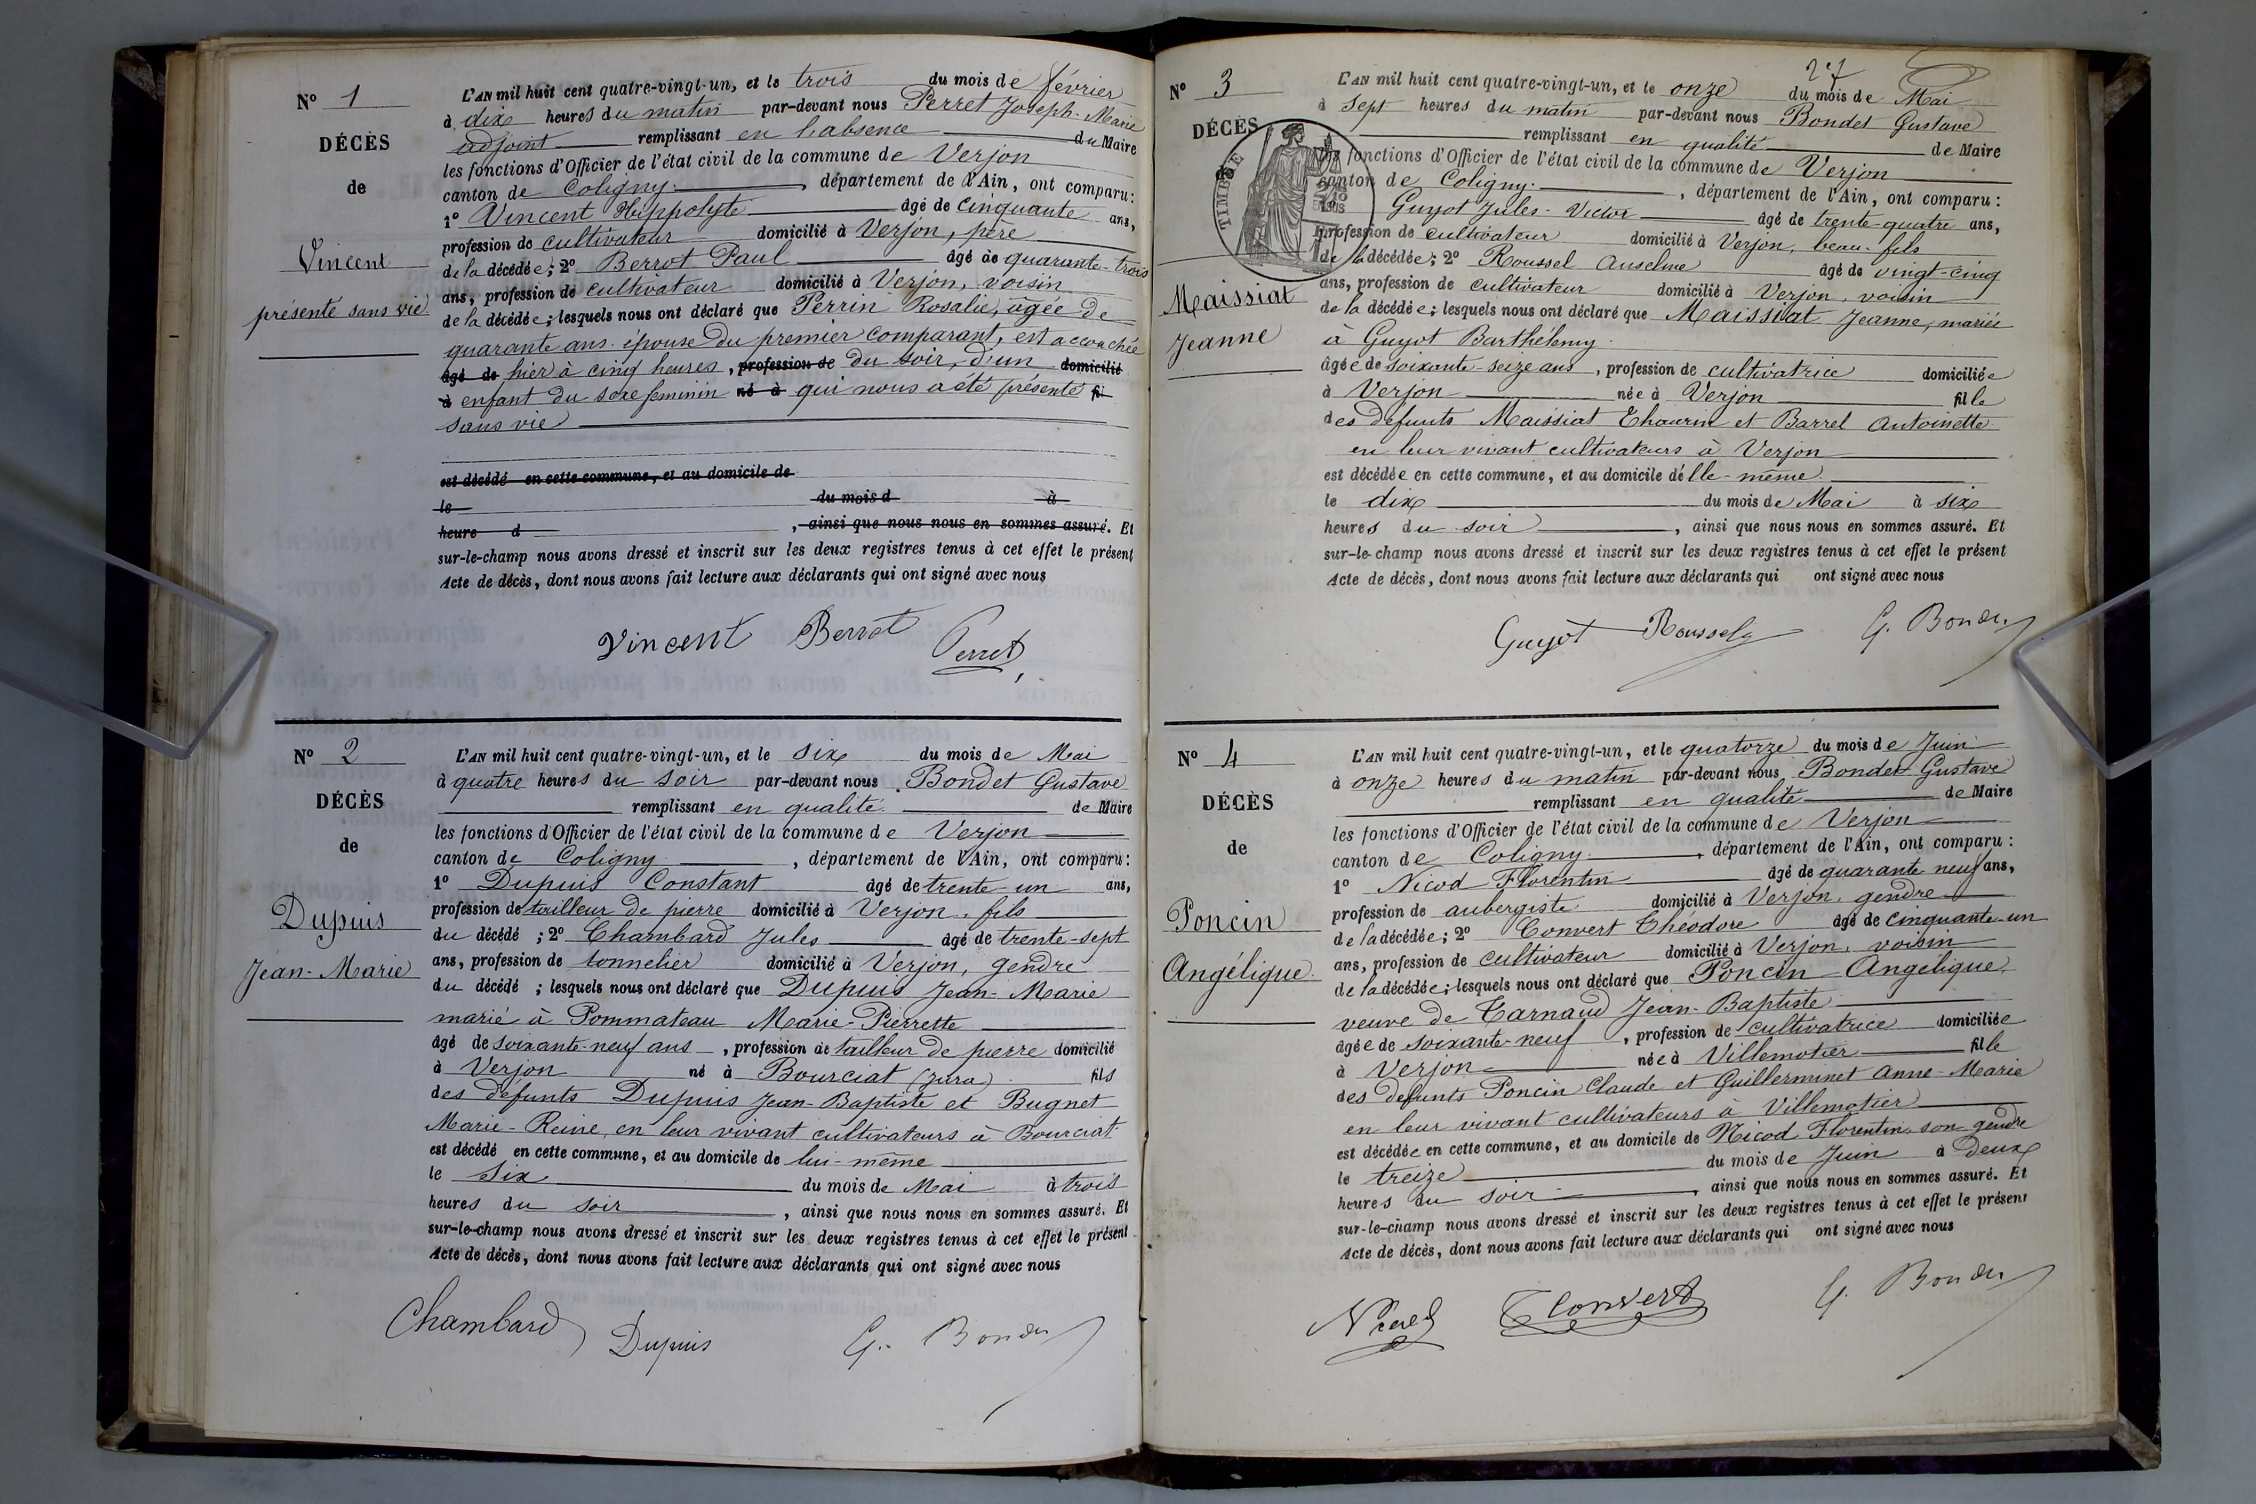 N° 1
DÉCÈS
de
Vincent
présenté sans vie
L'AN mil huit cent quatre-vingt-un, et le trois du mois de février
à dix heures du matin par-devant nous Perret Joseph-Marie
adjoint remplissant en l'absence du Maire
les fonctions d'Officier de l'état civil de la commune de Verjon
canton de Coligny, département de l'Ain, ont comparu:
1° Vincent Hippolyte âgé de cinquante ans,
profession de cultivateur domicilié à Verjon, père
de la décédée; 2° Berrot Paul âgé de quarante-trois
ans, profession de cultivateur domicilié à Verjon, voisin
de la décédée; lesquels nous ont déclaré que Perrin Rosalie, âgée de
quarante ans épouse du premier comparant, est accouchée
âgé de hier à cinq heures, profession de du soir, d'un domicilié
à enfant du sexe feminin né à qui nous a été présenté fi
sans vie
est décédé en cette commune, et au domicile de
le du mois d à
heure d , ainsi que nous nous en sommes assuré. Et
sur-le-champ nous avons dressé et inscrit sur les deux registres tenus à cet effet le présent
Acte de décès, dont nous avons fait lecture aux déclarants qui ont signé avec nous
Vincent Berrot Perret
N° 2
DÉCÈS
de
Dupuis
Jean-Marie
L'AN mil huit cent quatre-vingt-un, et le six du mois de Mai
à quatre heures du soir par-devant nous Bondet Gustave
remplissant en qualité de Maire
les fonctions d'Officier de l'état civil de la commune de Verjon
canton de Coligny, département de l'Ain, ont comparu:
1° Dupuis Constant âgé de trente-un ans,
profession de tailleur de pierre domicilié à Verjon, fils
du décédé; 2° Chambard Jules âgé de trente-sept
ans, profession de tonnelier domicilié à Verjon, gendre
du décédé; lesquels nous ont déclaré que Dupuis Jean-Marie
marié à Pommateau Marie-Pierrette
âgé de soixante-neuf ans, profession de tailleur de pierre domicilié
à Verjon né à Bourciat (Jura) fils
des défunts Dupuis Jean-Baptiste et Bugnet
Marie-Reine, en leur vivant cultivateurs à Bourciat
est décédé en cette commune, et au domicile de lui-même
le six du mois de Mai à trois
heures du soir, ainsi que nous nous en sommes assuré. Et
sur-le-champ nous avons dressé et inscrit sur les deux registres tenus à cet effet le présent
Acte de décès, dont nous avons fait lecture aux déclarants qui ont signé avec nous
Chambard Dupuis G. Bondet
27
N° 3
DÉCÈS
TIMBRE
Maissiat
Jeanne
L'AN mil huit cent quatre-vingt-un, et le onze du mois de Mai
à sept heures du matin par-devant nous Bondet Gustave
remplissant en qualité de Maire
les fonctions d'Officier de l'état civil de la commune de Verjon
canton de Coligny, département de l'Ain, ont comparu:
Guyot Jules-Victor âgé de trente-quatre ans,
profession de cultivateur domicilié à Verjon, beau-fils
de la décédée; 2° Roussel Anselme âgé de vingt-cinq
ans, profession de cultivateur domicilié à Verjon, voisin
de la décédée; lesquels nous ont déclaré que Maissiat Jeanne, mariée
à Guyot Barthélemy
âgée de soixante-seize ans, profession de cultivatrice domiciliée
à Verjon née à Verjon fille
des défunts Maissiat Thaurin et Barrel Antoinette
en leur vivant cultivateurs à Verjon
est décédée en cette commune, et au domicile d'elle-même
le dix du mois de Mai à six
heures du soir, ainsi que nous nous en sommes assuré. Et
sur-le-champ nous avons dressé et inscrit sur les deux registres tenus à cet effet le présent
Acte de décès, dont nous avons fait lecture aux déclarants qui ont signé avec nous
Guyot Roussel G. Bondet
N° 4
DÉCÈS
de
Poncin
Angélique
L'AN mil huit cent quatre-vingt-un, et le quatorze du mois de Juin
à onze heures du matin par-devant nous Bondet Gustave
remplissant en qualité de Maire
les fonctions d'Officier de l'état civil de la commune de Verjon
canton de Coligny, département de l'Ain, ont comparu:
1° Nicod Florentin âgé de quarante neuf ans,
profession de aubergiste domicilié à Verjon, gendre
de la décédée; 2° Convert Théodore âgé de cinquante-un
ans, profession de cultivateur domicilié à Verjon, voisin
de la décédée; lesquels nous ont déclaré que Poncin Angélique,
veuve de Tarnaud Jean-Baptiste
âgée de soixante-neuf, profession de cultivatrice domiciliée
à Verjon née à Villemotier fille
des défunts Poncin Claude et Guillerminet Anne-Marie
en leur vivant cultivateurs à Villemotier
est décédée en cette commune, et au domicile de Nicod Florentin, son gendre
le treize du mois de Juin à Deux
heures du soir, ainsi que nous nous en sommes assuré. Et
sur-le-champ nous avons dressé et inscrit sur les deux registres tenus à cet effet le présent
Acte de décès, dont nous avons fait lecture aux déclarants qui ont signé avec nous
Nicod TConvert G. Bondet